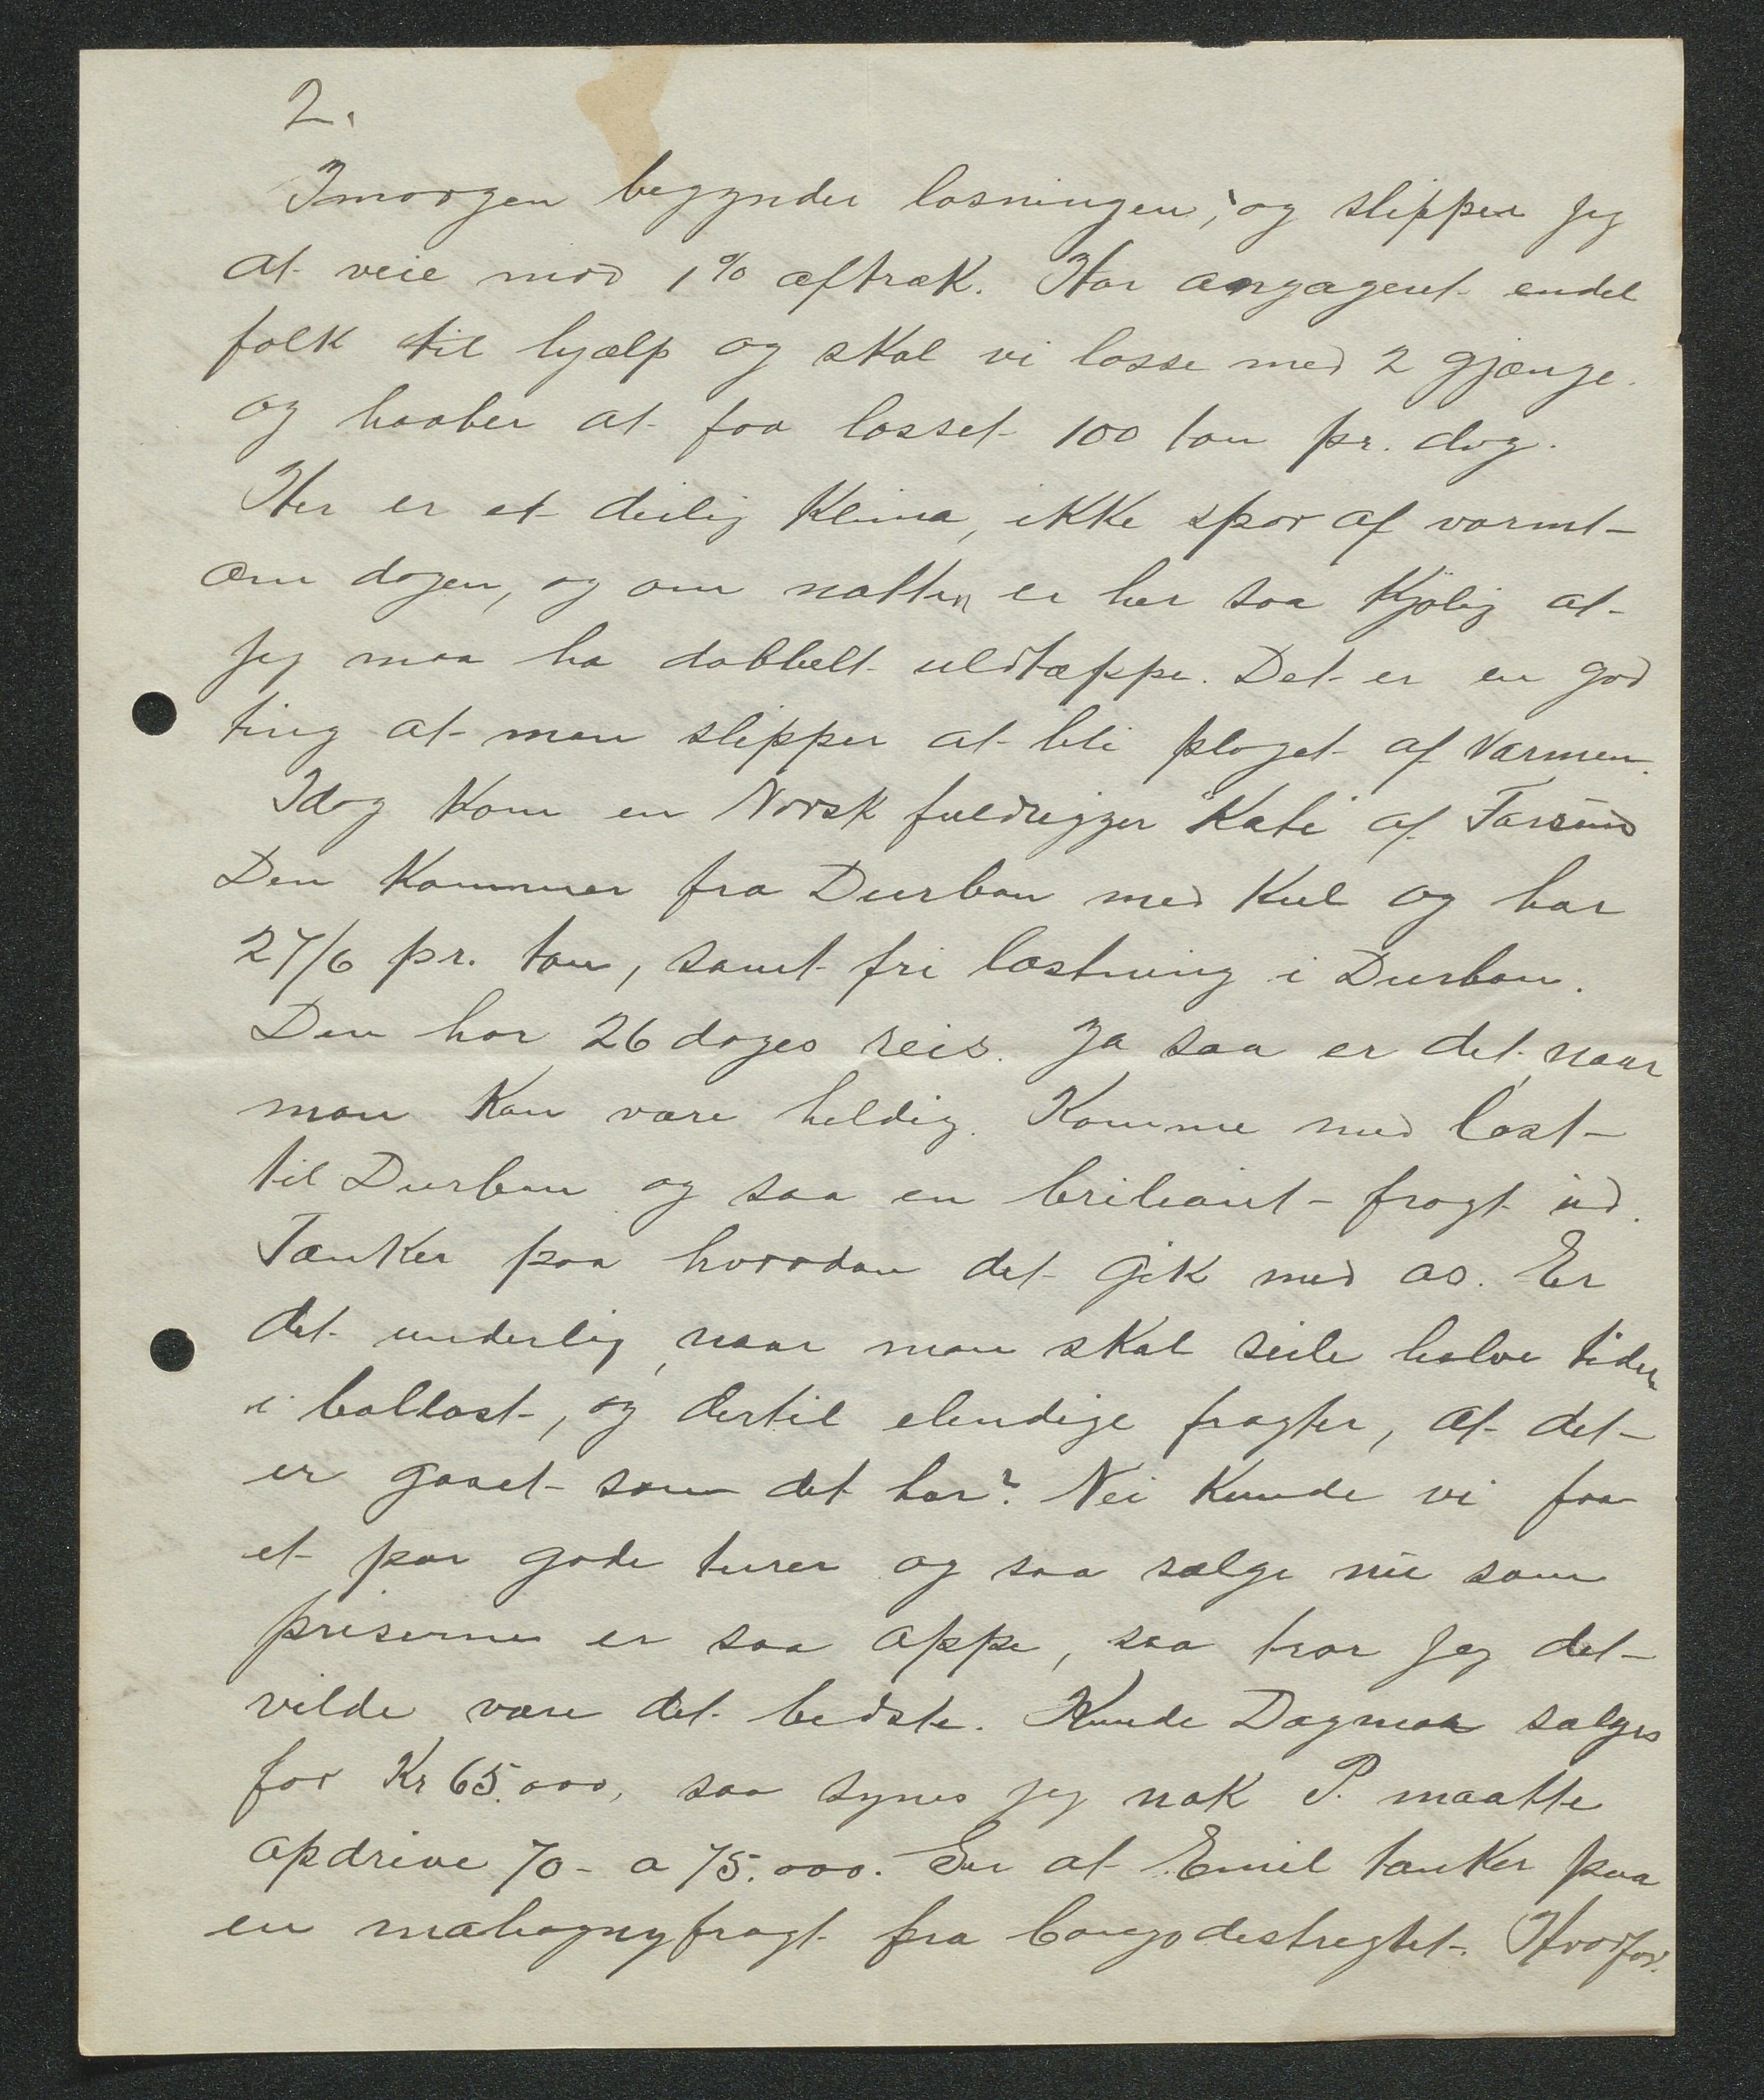 2.
Imorgen begynder losningen, og slipper jeg
at veie mod 1% aftræk. Har angageret endel
folk til hjælp og skal vi losse med 2 gjænge.
og haaber at faa losset 100 ton pr. dag.
Her er et deilig Klima, ikke spor af varmt
om dagen, og om natten er her saa kjølig at
jeg maa ha dobbelt uldtæppe. Det er en god
ting at man slipper at bli plaget af varmen.
Idag kom en Norsk fuldrigger "Kate" af Farsund
Den kommer fra Durban med Kul og har
27/6 pr. ton, samt fri lastning i Durban.
Den har 26 dages reis. Ja saa er det, naar
man kan være heldig. Komme med last
til Durban og saa en briliant fragt ud.
Tænker paa hvordan det gik med os. Er
det underlig, naar man skal seile halve tiden
i ballast, og dertil elendige fragter, at det
er gaaet som det har? Nei kunde vi faa
et par gode turer og saa sælge nu som
priserne er saa oppe, saa tror jeg det
vilde være det bedste. Kunde Dagmar sælges
for Kr 65.000, saa synes jeg nok P. maatte
opdrive 70- a 75.000. Ser at Emil tænker paa
en mahognyfragt fra Congodestregtet. Hvorfor